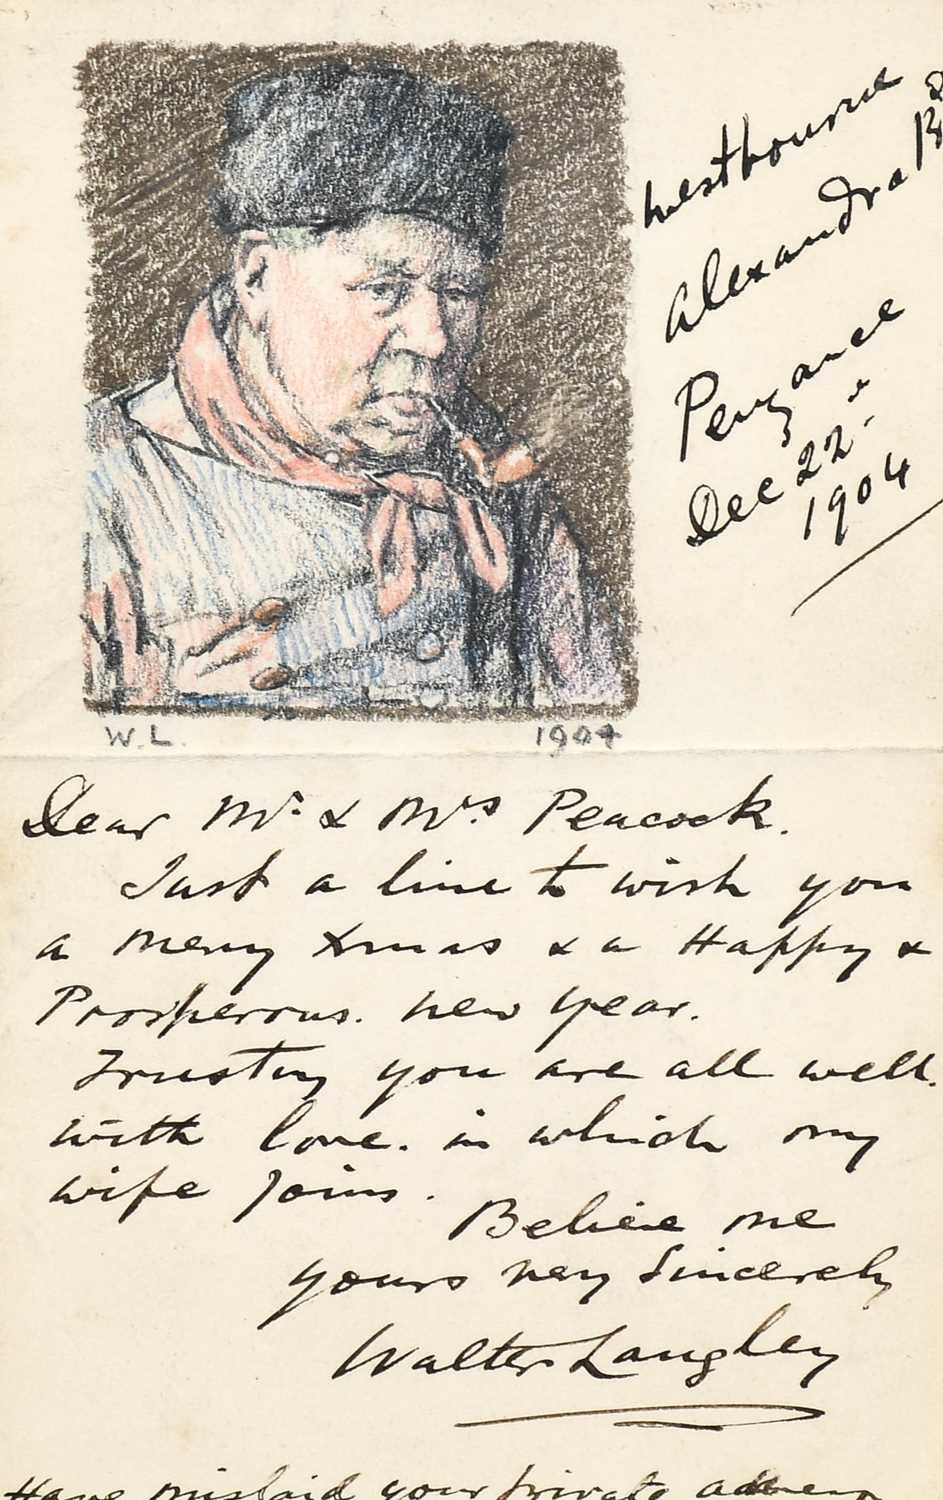 Westbourne
Alexandra Rd
Penzance
Dec 22"
1904
W.L. 1904
Dear Mr. & Mrs Peacock.
Just a line to wish you
a merry Xmas & a Happy &
Prosperous. new year.
Trusting you are all well.
with love. in which my
wife joins.
Believe me
yours very Sincerely
Walter Langley
Have mislaid your private address